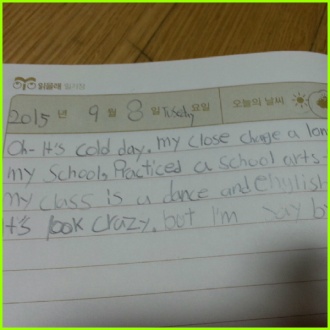 읽올래 일기장
2015 년 9 월 8 일 요일 오늘의 날씨
Oh- It's cold day. my close change a lon
my School, Practiced a school arts-
my class is a dance and
It's look crazy. but I'm say b